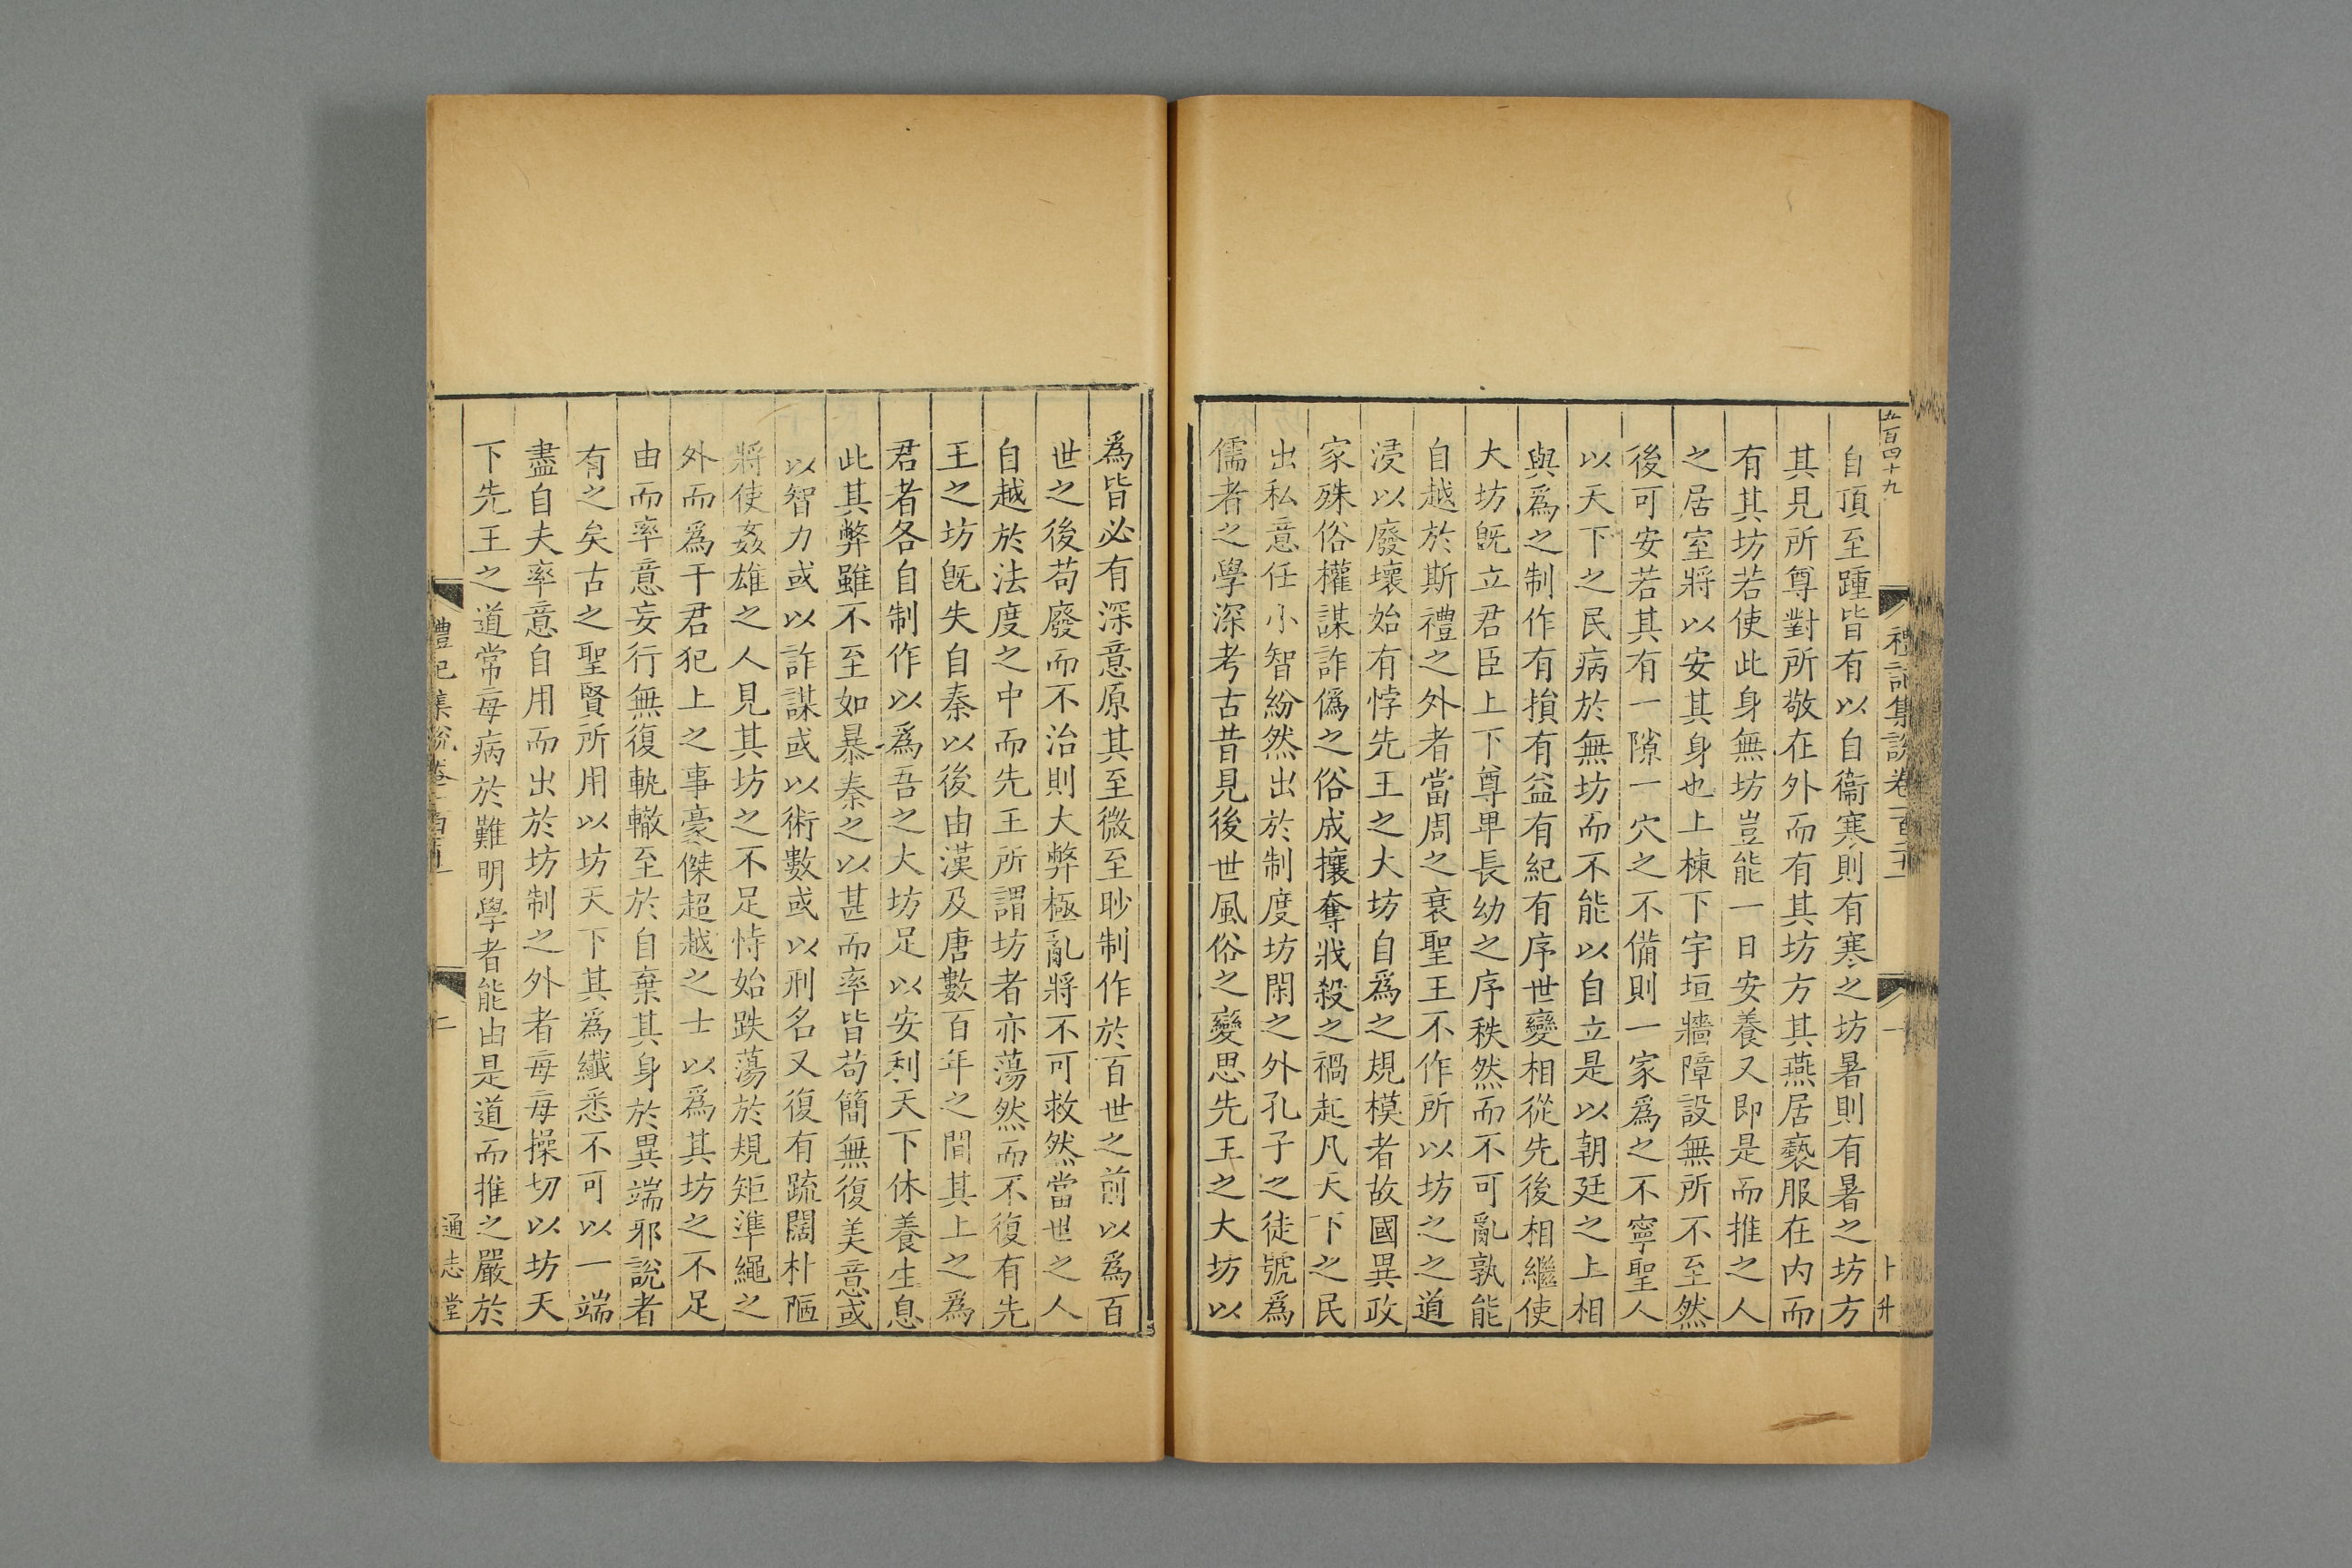 五百四十九
禮記集說卷一百二十
一
卜升
自頂至踵皆有以自衞寒則有寒之坊暑則有暑之坊方
其見所尊對所敬在外而有其坊方其燕居褻服在內而
有其坊若使此身無坊豈能一日安養又即是而推之人
之居室將以安其身也上棟下宇垣牆障設無所不至然
後可安若其有一隙一穴之不備則一家爲之不寧聖人
以天下之民病於無坊而不能以自立是以朝廷之上相
與爲之制作有損有益有紀有序世變相從先後相繼使
大坊旣立君臣上下尊卑長幼之序秩然而不可亂孰能
自越於斯禮之外者當周之衰聖王不作所以坊之之道
浸以廢壞始有悖先王之大坊自爲之規模者故國異政
家殊俗權謀詐僞之俗成攘奪戕殺之禍起凡天下之民
出私意任小智紛然出於制度坊閑之外孔子之徒號爲
儒者之學深考古昔見後世風俗之變思先王之大坊以
爲皆必有深意原其至微至眇制作於百世之前以爲百
世之後苟廢而不治則大弊極亂將不可救然當世之人
自越於法度之中而先王所謂坊者亦蕩然而不復有先
王之坊旣失自秦以後由漢及唐數百年之間其上之爲
君者各自制作以爲吾之大坊足以安利天下休養生息
此其弊雖不至如暴秦之以甚而率皆苟簡無復美意或
以智力或以詐謀或以術數或以刑名又復有疏闊朴陋
將使姦雄之人見其坊之不足恃始跌蕩於規矩準繩之
外而爲干君犯上之事豪傑超越之士以爲其坊之不足
由而率意妄行無復軌轍至於自棄其身於異端邪說者
有之矣古之聖賢所用以坊天下其爲纖悉不可以一端
盡自夫率意自用而出於坊制之外者每每操切以坊天
下先王之道常每病於難明學者能由是道而推之嚴於
禮記集說卷一百
二
通志堂